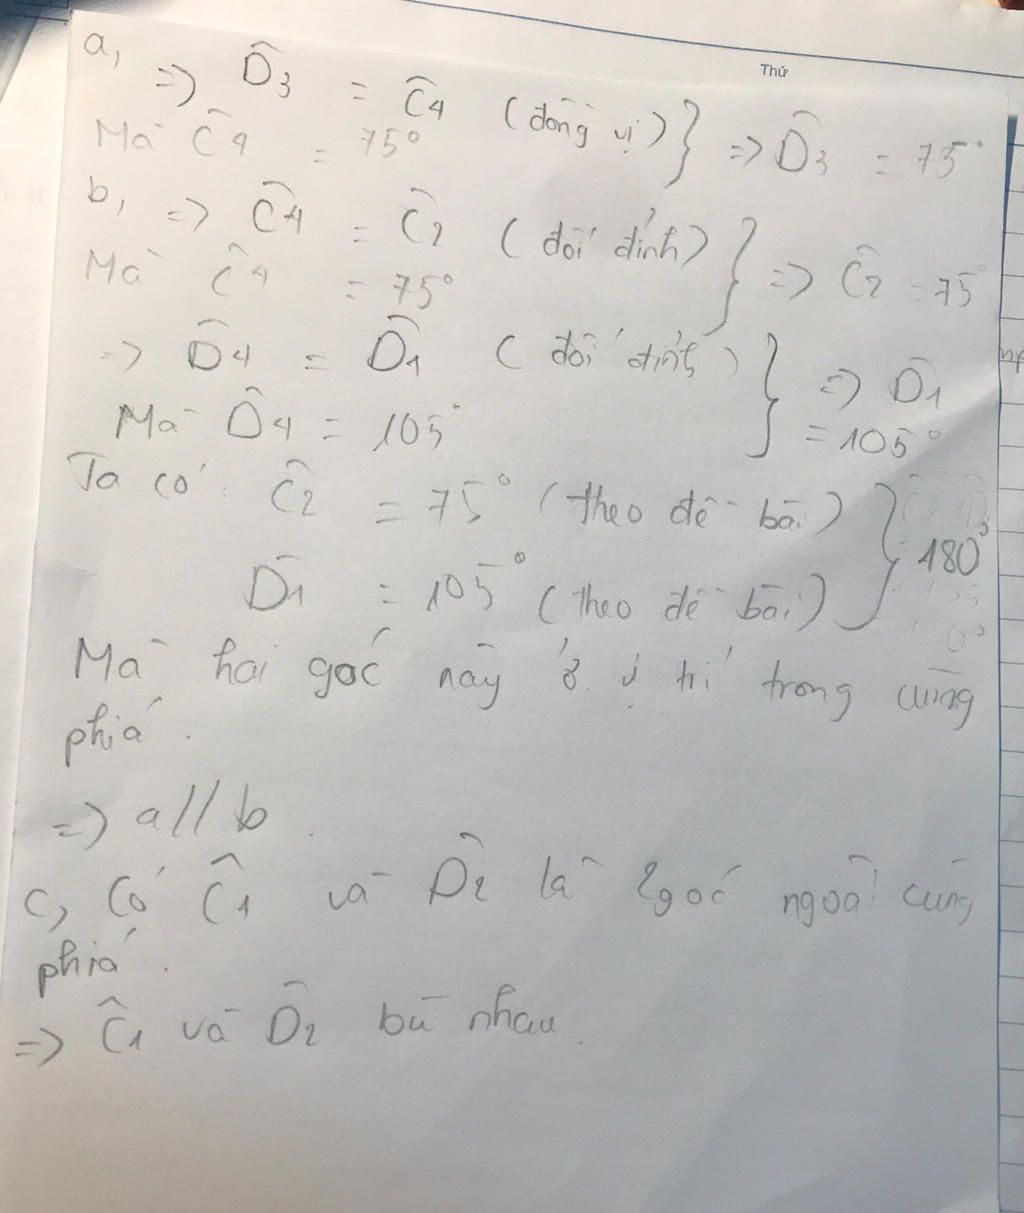 Thứ
a, => D̂3 = Ĉ4 (đồng vị) } => D̂3 = 75°
Mà Ĉ4 = 75°
b, => Ĉ4 = Ĉ2 (đối đỉnh) } => Ĉ2 = 75°
Mà Ĉ4 = 75°
=> D̂4 = D̂1 (đối đỉnh) } => D̂1
Mà D̂4 = 105° = 105°
Ta có: Ĉ2 = 75° (theo đề bài) } 180°
D̂1 = 105° (theo đề bài)
Mà hai góc này ở vị trí trong cùng
phía.
=> a//b.
c, Có Ĉ1 và D̂2 là 2 góc ngoài cùng
phía.
=> Ĉ1 và D̂2 bù nhau.